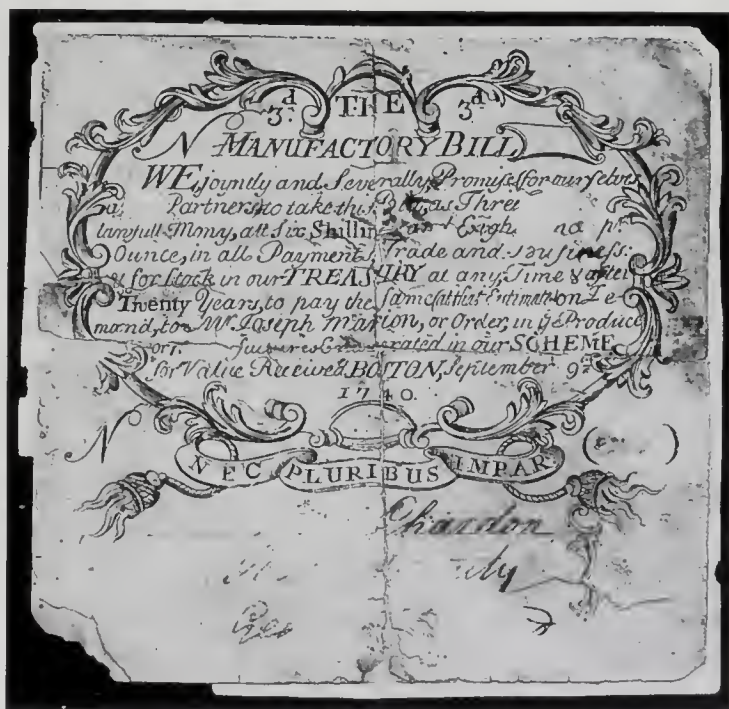 3.d THE 3.d
N MANUFACTORY BILL
WE, joyntly and Severally, Promise for ourselves
Partners to take this as Three
lawfull Mony, att Six Shillin and Eigh
Ounce, in all Payments, Trade and Business:
& for Stock in our TREASURY at any Time & after
Twenty Years, to pay the same att that Estimate on De
mand, to Mr Joseph Marion, or Order, in ye Produce
or in our SCHEME
for Value Received. BOSTON, September 9
1740.
N
NEC PLURIBUS IMPAR
Chardon